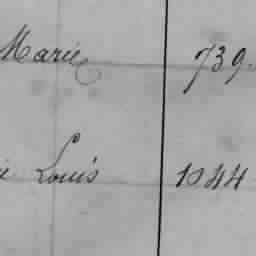 Marie 739.
Louis 1044